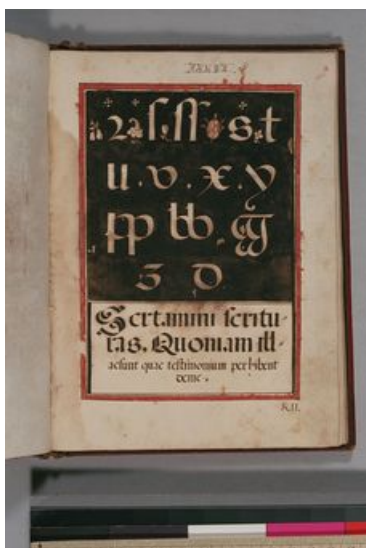 2.ſ.ſſ.s.t
u.v.x.y
pp bb gg
Scrtamini scritu-
ras. Quoniam ill-
aesunt quae testimonium perhibent
deme.